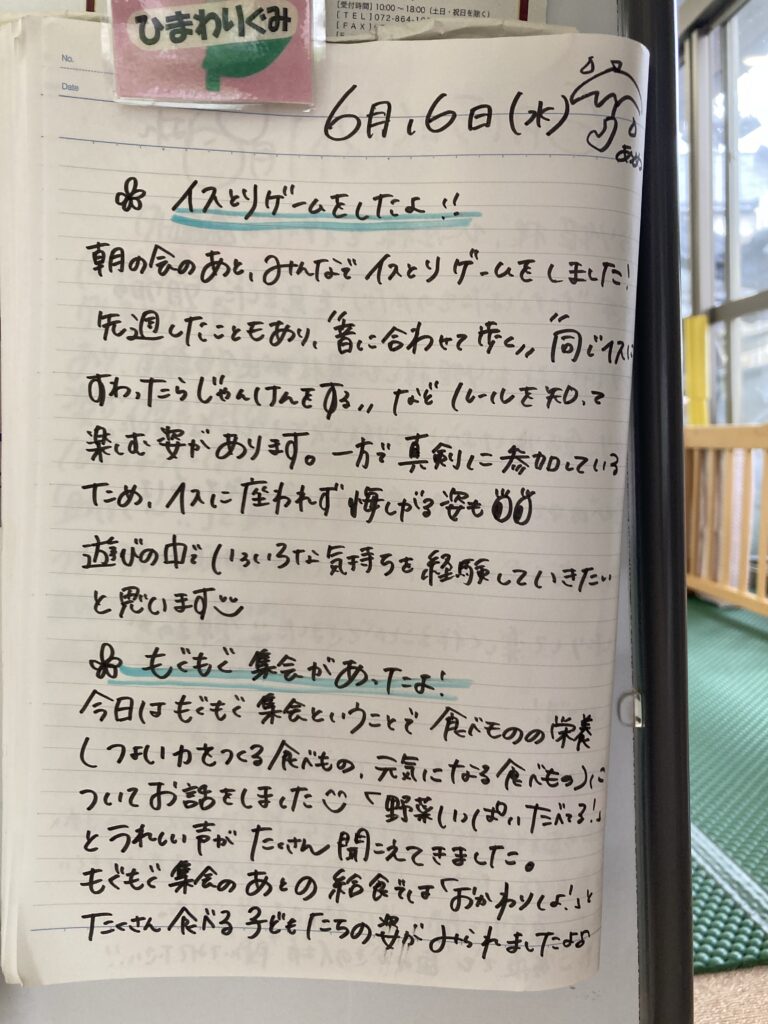 [受付時間] 10:00～18:00 (土日・祝日を除く)
[TEL] 072-864-
[FAX]
ひまわりぐみ
No.
Date
6月、6日(水)
あめ
イスとりゲームをしたよ!!
朝の会のあと、みんなでイスとりゲームをしました!
先週したこともあり、"音に合わせて歩く" "同じイスに
すわったらじゃんけんをする" などルールを知って
楽しむ姿があります。一方で真剣に参加している
ため、イスに座われず悔しがる姿も
遊びの中でいろいろな気持ちを経験していきたい
と思います
もぐもぐ集会があったよ!
今日はもぐもぐ集会ということで食べものの栄養
(つよい力をつくる食べもの、元気になる食べもの)に
ついてお話をしました「野菜いっぱいたべてる!」
とうれしい声がたくさん聞こえてきました。
もぐもぐ集会のあとの給食では「おかわりしよ!」と
たくさん食べる子どもたちの姿がみられましたよ